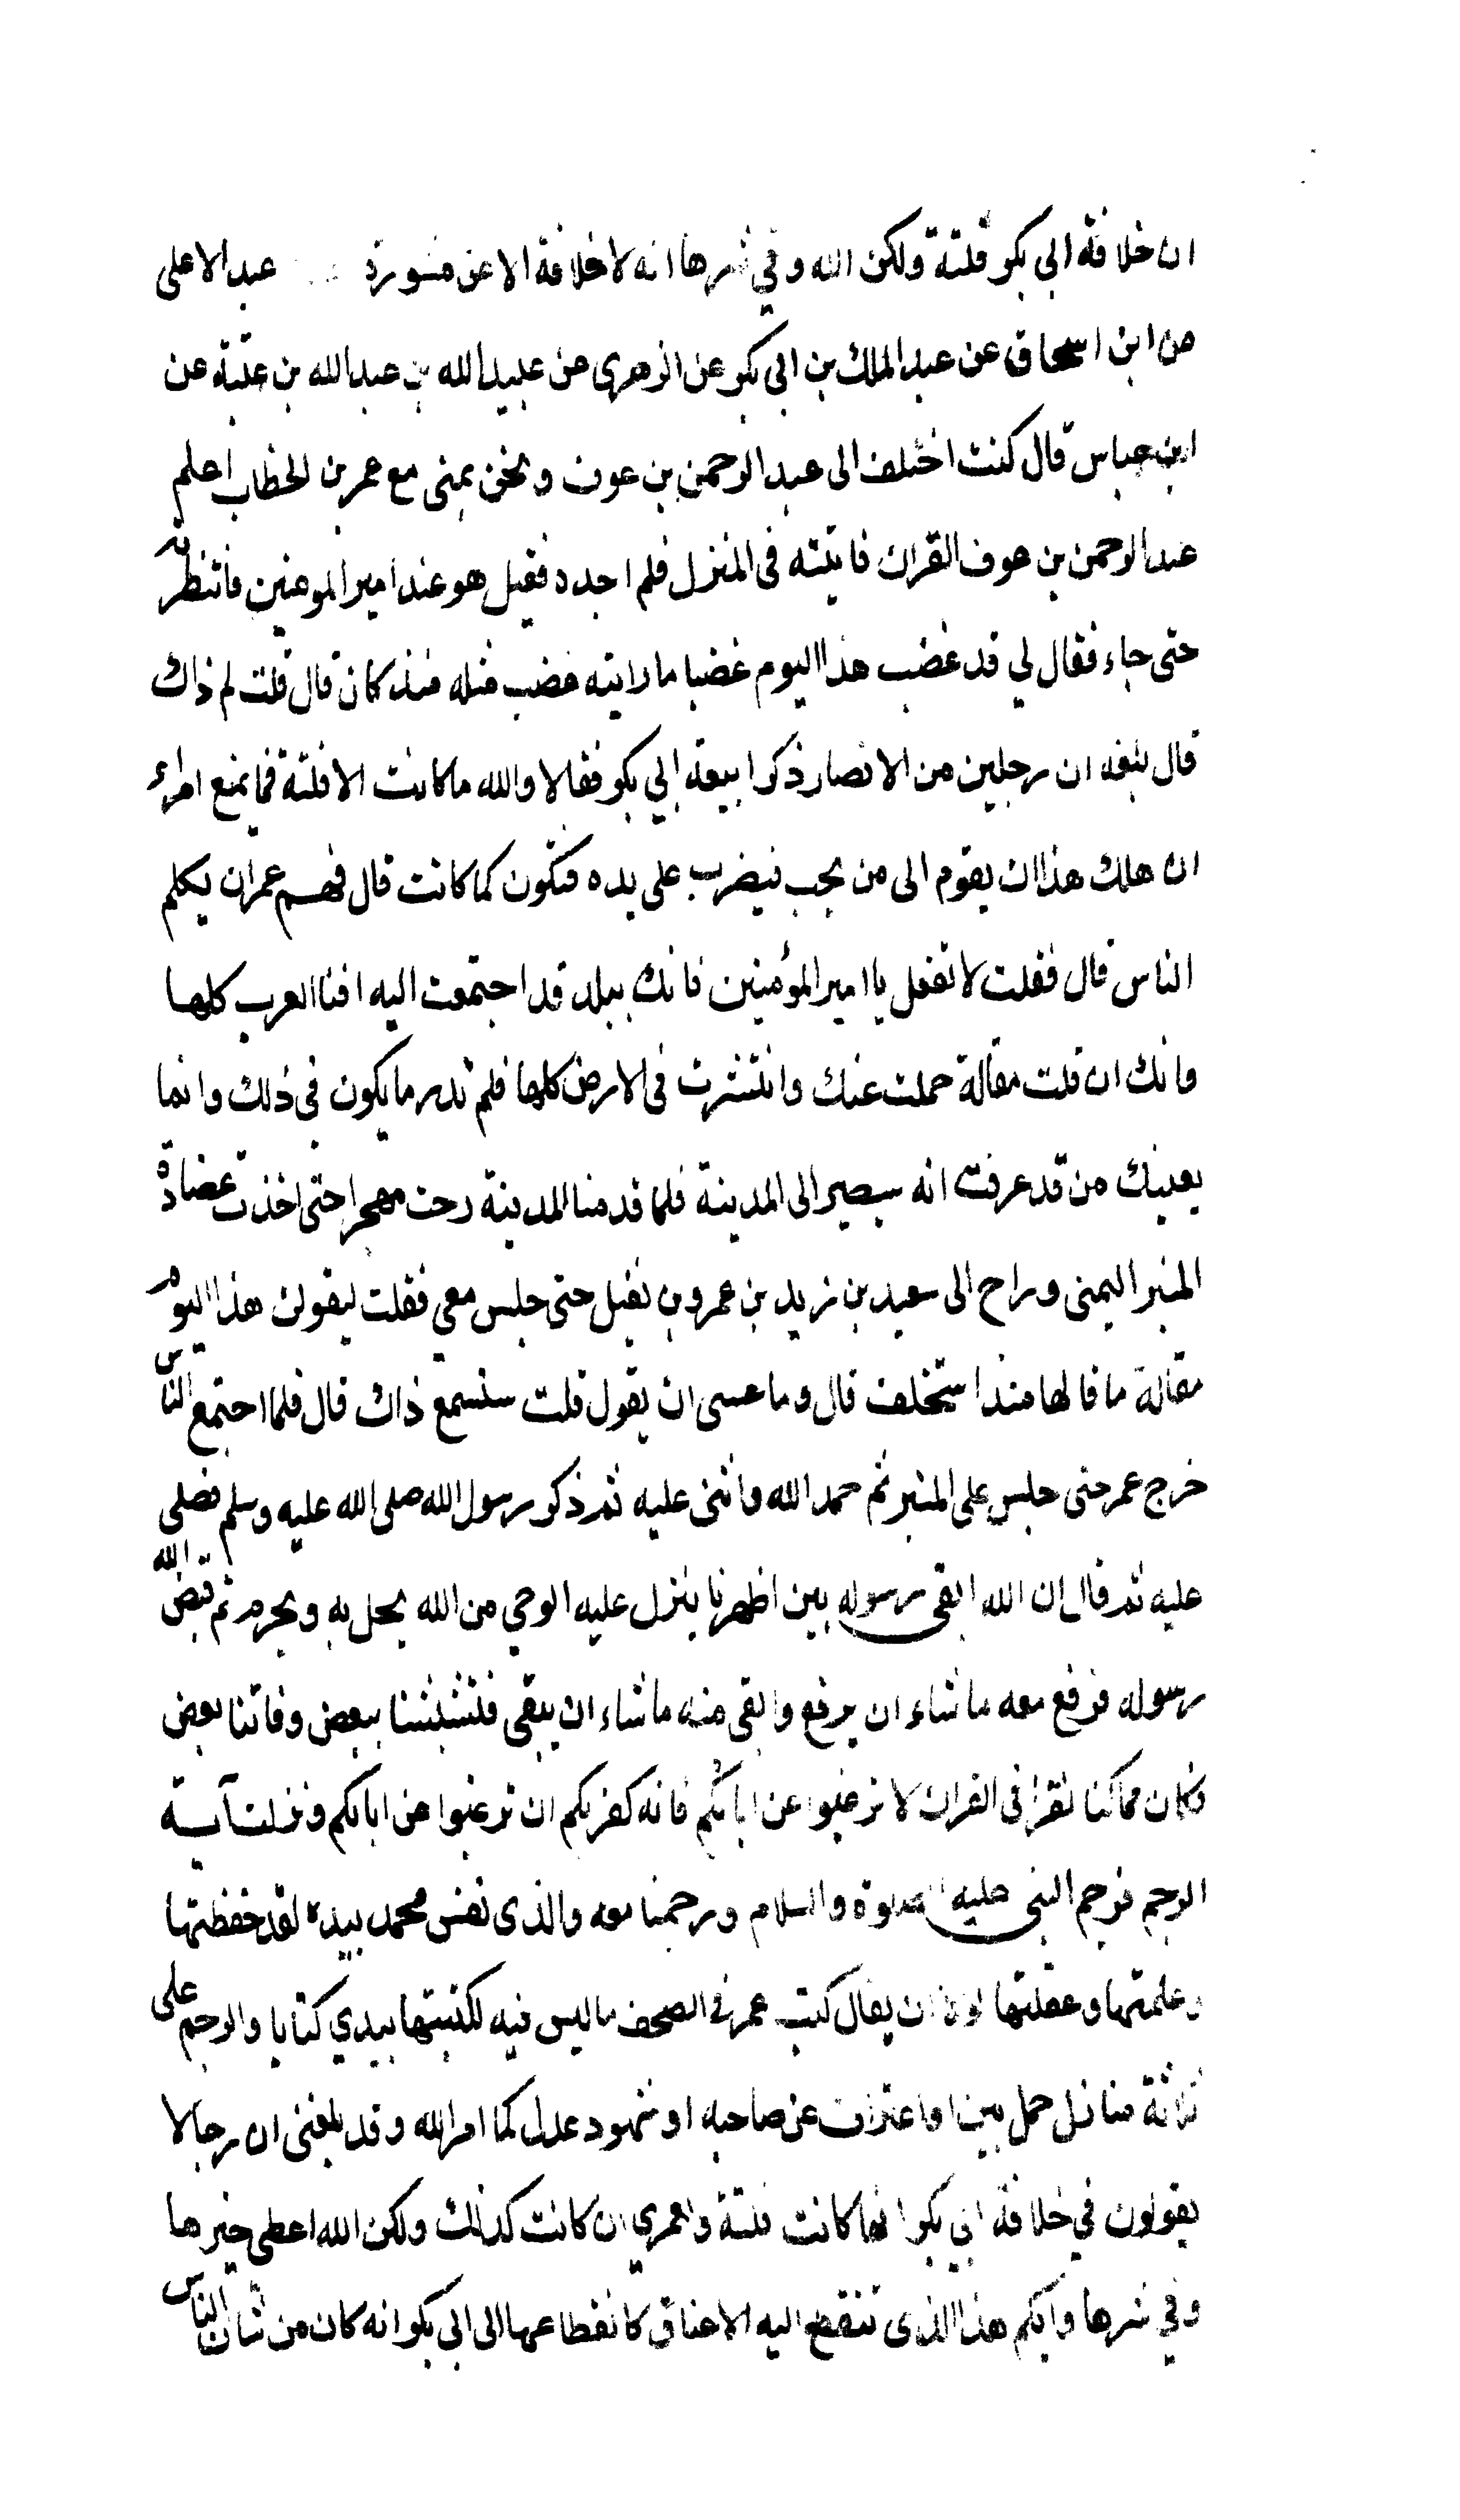 ان خلافة ابي بكر فلتة ولكن الله وقي شرها انه لا خلافة الا عن مشورة عبد الاعلى
عن ابن اسحاق عن عبد الملك بن ابي بكر عن الزهرى عن عبيد الله بن عبد الله بن عتبة عن
ابن عباس قال كنت اختلف الى عبد الرحمن بن عوف ونحن بمنى مع عمر بن الخطاب اعلم
عبد الرحمن بن عوف القران فاتيته فى المنزل فلم اجده فقيل هو عند امير المومنين فانتظرته
حتى جاء فقال لي قد غضب هذا اليوم غضبا ما رايته غضب مثله منذ كان قال قلت لم ذاك
قال بلغه ان رجلين من الانصار ذكرا بيعة ابي بكر فقالا والله ما كانت الا فلتة فما يمنع امراء
ان هلك هذا ان يقوم الى من يحب فيضرب على يده فتكون كما كانت قال فهم عمر ان يكلم
الناس قال فقلت لا تفعل يا امير المؤمنين فانك ببلد قد اجتمعت اليه افنا العرب كلها
وانك ان قلت مقالة حملت عنك وانتشرت فى الارض كلها فلم تدر ما يكون فى ذلك وانما
يعينك من قد عرفت انه سيصير الى المدينة فلما قدمنا المدينة رحت مهجرا حتى اخذت عضادة
المنبر اليمنى وراح الى سعيد بن زيد بن عمرو بن نفيل حتى جلس معي فقلت ليقولن هذا اليوم
مقالة ما قالها منذ استخلف قال وما عسى ان يقول قلت ستسمع ذاك قال فلما اجتمع الناس
خرج عمر حتى جلس على المنبر ثم حمد الله واثنى عليه ثم ذكر رسول الله صلى الله عليه وسلم فصلى
عليه ثم قال ان الله ابقى رسوله بين اظهرنا ينزل عليه الوحي من الله يحل به ويحرم ثم قبض الله
رسوله فرفع معه ما شاء ان يرفع وابقى منه ما شاء ان يبقى فتشبثنا ببعض وفاتنا بعض
فكان مما كنا نقرا فى القران لا ترغبوا عن ابائكم فانه كفر بكم ان ترغبوا عن ابائكم ونزلت آية
الرجم فرجم النبى عليه الصلوة والسلام ورجمنا معه والذى نفس محمد بيده لقد حفظتها
وعلمتها وعقلتها لولا ان يقال كتب عمر فى المصحف ما ليس فيه لكتبتها بيدي كتابا والرجم على
ثلثة منازل حمل بين او اعتراف عن صاحبه او شهود عدل كما امر الله وقد بلغنى ان رجالا
يقولون في خلافة ابي بكر انها كانت فلتة ولعمري ان كانت كذلك ولكن الله اعطى خيرها
وقي شرها وايكم هذا الذى تنقطع اليه الاعناق كانقطاعها الى ابى بكر انه كان من شان الناس